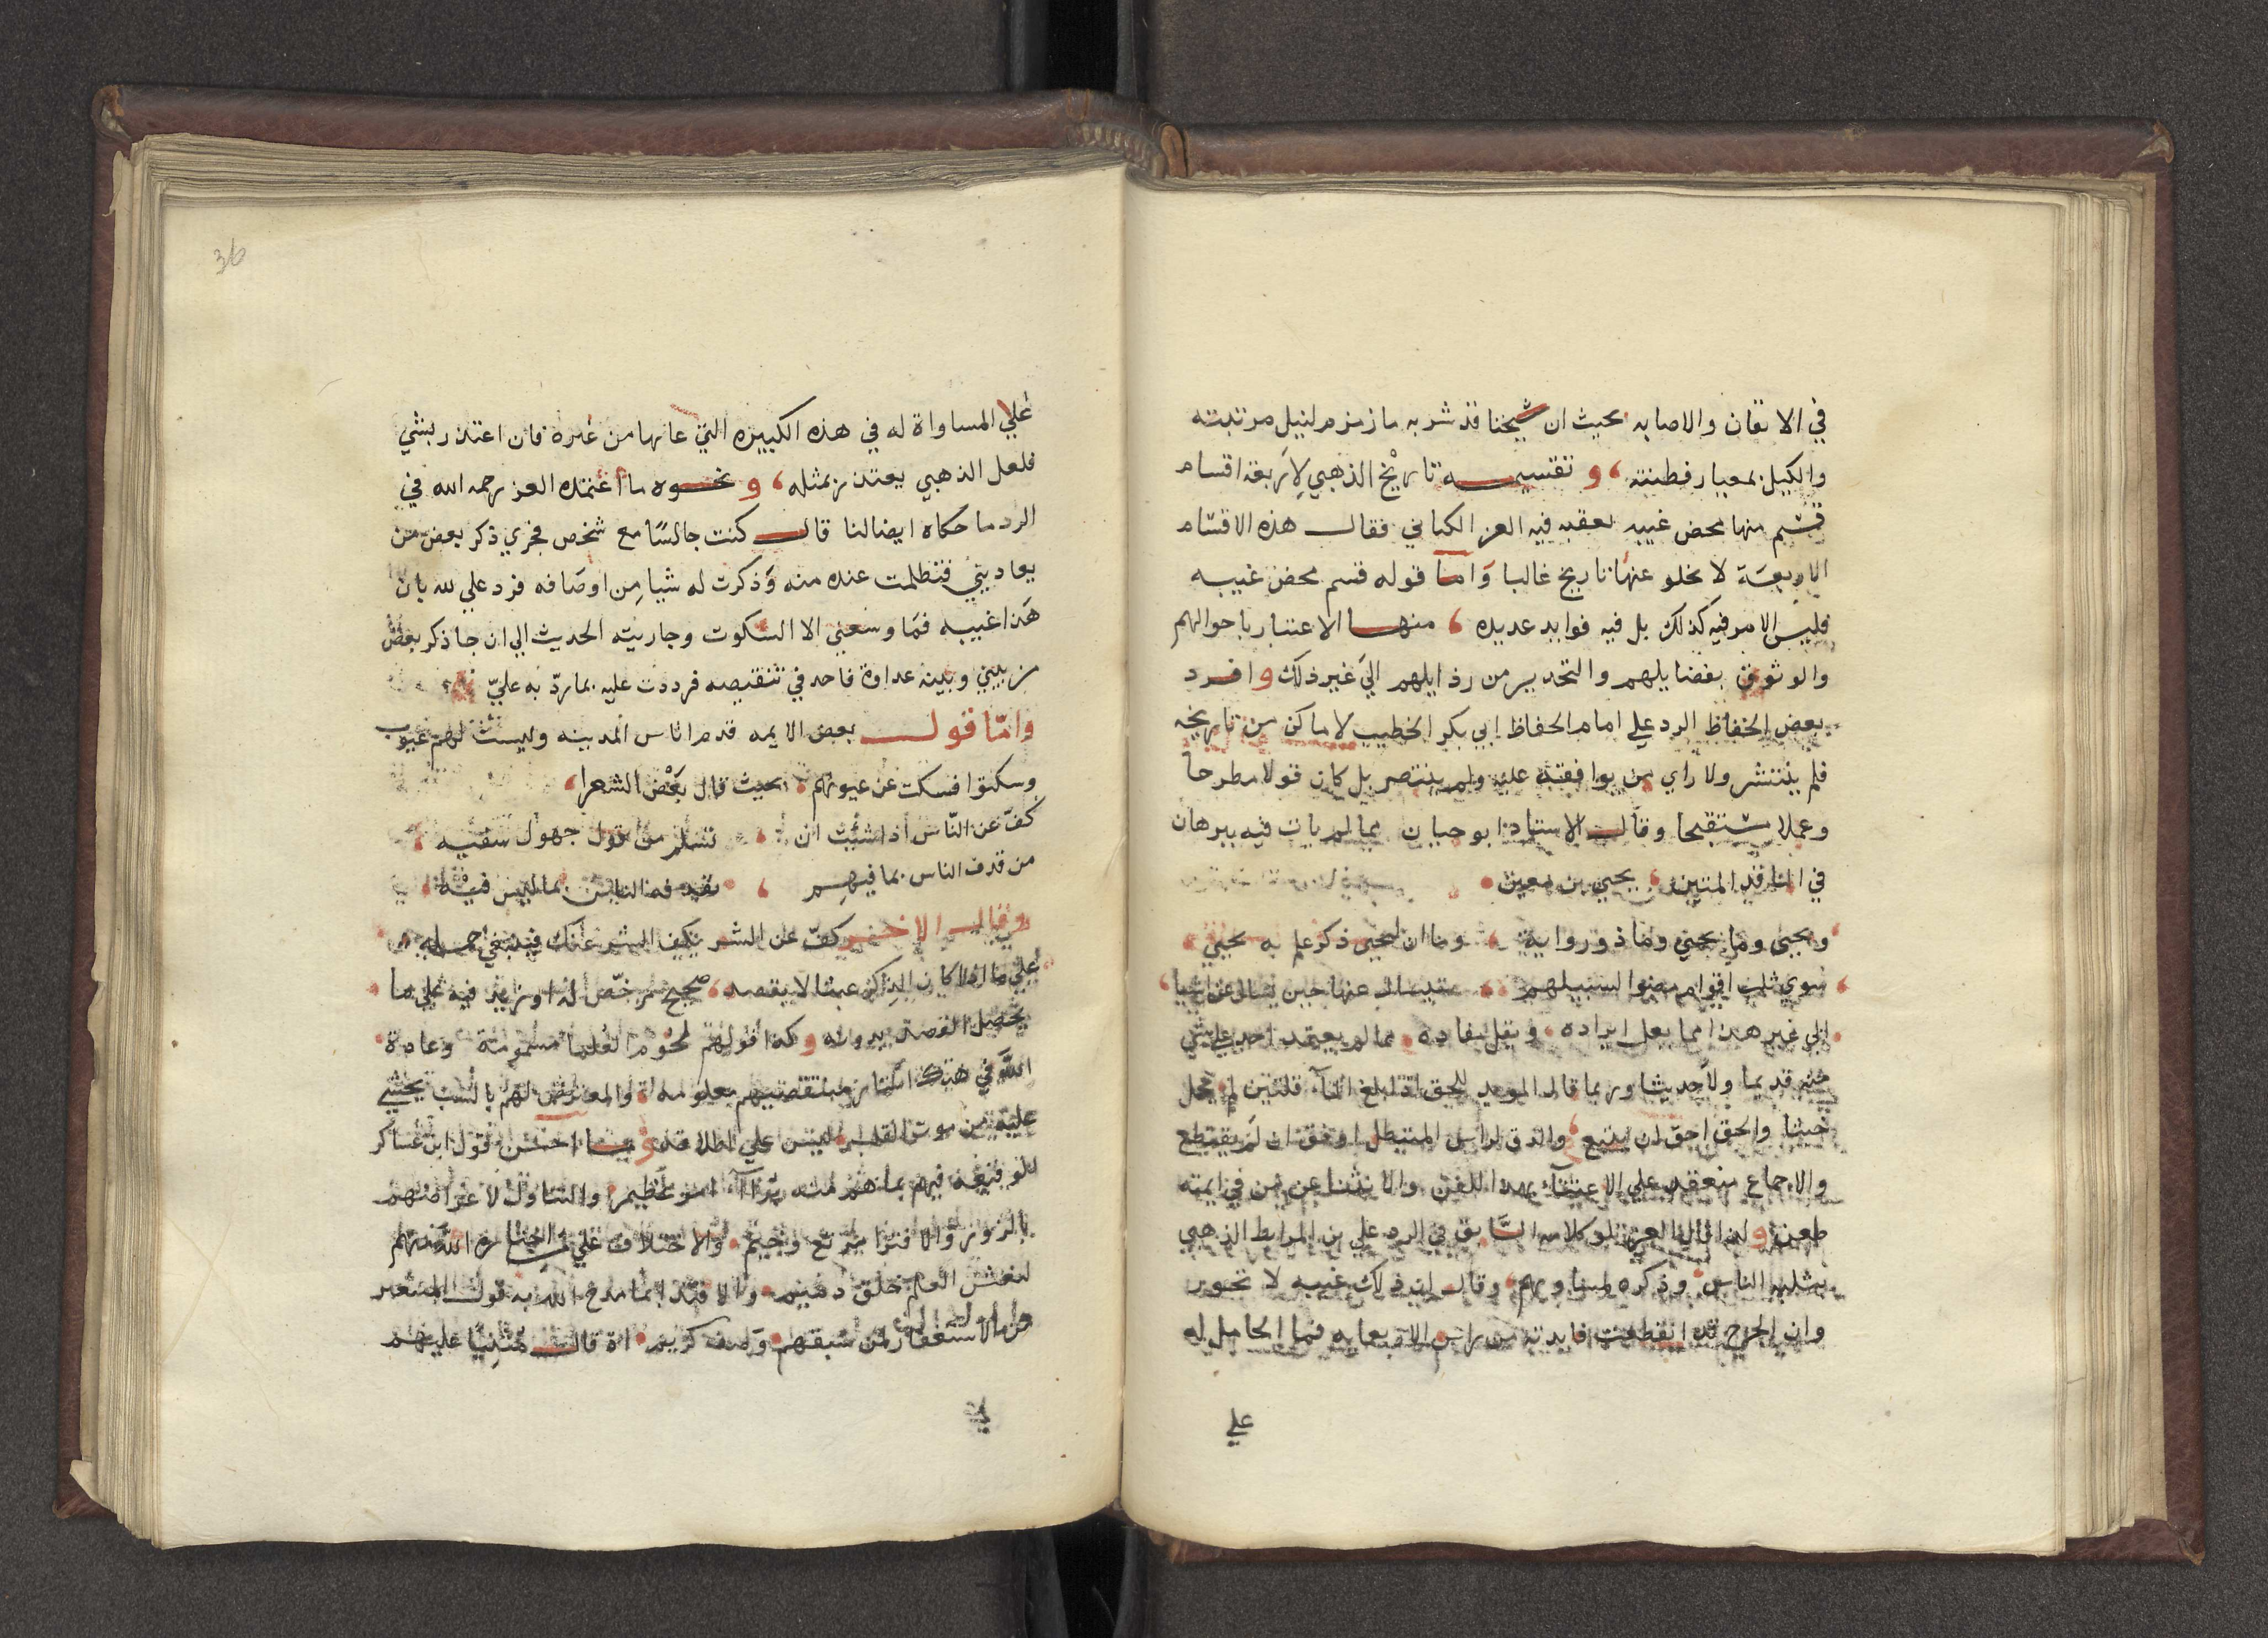 في الاتقان والاصابه بحيث ان شيخنا قد شرب ما زمزم لنيل مرتبته
والكيل بمعيار فطنته، وتقسيمه تاريخ الذهبي لاربعة اقسام
قسم منها محض غيبه تعقبه فيه العز الكناني فقال هذه الاقسام
الاربعة لا يخلو عنها تاريخ غالبا واما قوله قسم محض غيبه
فليس الامر فيه كذلك بل فيه فوايد عديده، منها الاعتبار باحوالهم
والوثوق بفضايلهم والتحدير من رذايلهم الي غير ذلك وافرد
بعض الحفاظ الرد علي امام الحفاظ ابي بكر الخطيب لاماكن من تاريخه
فلم ينتشر ولا راي من يوافقه عليه ولم ينتصر بل كان قولا مطرحا
وعملا مستقبحا وقال الاستاد ابو حيان مما لم يات فيه ببرهان
في الناقد المتين، يحيي بن معين
ويحيى وما يحيي وما ذو رواية، وما ان ليحيى ذكر علم به يحيي،
سوي ثلب اقوام مضوا لسبيلهم،
الي غير هذا مما يعل ايراده، ويقل مفاده، مما لم يعتمد احد علي شي
منه قديما ولا حديثا وربما قال المويد للحق اذا بلغ الماء قلتين لم يحمل
خبثا والحق احق ان يتبع، والدق لراس المبطل اوفق ان لم يقتطع
والاجماع منعقد علي الاعتناء بهذا الفن والانثنا عن من في ايمته
طعن ولهذا العز كلامه السابق في الرد علي بن المرابط الذهبي
بثلبه الناس، وذكره لمساويهم، وقال ان ذلك غيبه لا تجوز
وان الجرح قد انقطعت فايدته من راس الاربعمايه فما الحامل له
علي
36
علي المساواة له في هذه الكبيره التي عابها من غيره فان اعتذر بشي
فلعل الذهبي يعتذر بمثله، ونحوه ما اعتمده العز رحمه الله في
الرد ما حكاه ايضا لنا قال كنت جالسا مع شخص فجري ذكر بعض من
يعاديني فتظلمت عنده منه وذكرت له شيا من اوصافه فرد علي لله بان
هذا غيبه فما وسعني الا السكوت وجاريته الحديث الي ان جا ذكر بعض
من بيني وبينه عداوة فاحد في تنقيصه فرددت عليه بما رد به علي
واما قول بعض الايمه قدم اناس المدينه وليست لهم عيوب
وسكتوا فسكت عن عيوبهم، بحيث قال بعض الشعرا،
كف عن الناس اذا شئت ان، تسلم من قول جهول سفيه،
من قدف الناس بما فيهم، يقدفه الناس بما ليس فيه،
وقال الاخر كف عن الشر يكف الشر عنك فينبغي حمله
علي ما اذا كان الذاكر عبثا لا يقصد صحيح مرخص له او يزيد فيه علي ما
يحصل الغرض بدونه وكذا قولهم لحوم العلما مسمومة وعادة
الله في هتك استار منتقصيهم معلومه، والمعترض لهم بالسب يخشي
عليه من موت القلب ليس علي اطلاقه وما احسن قول ابن عساكر
الوقيعة فيهم بما هم منه برآء امر عظيم، والتناول لاعراضهم
بالزور والافترا مرتع وخيم، والاختلاق علي من اختاره الله منهم
لنعش العلم خلق ذميم، والاقتدا بما مدح الله به قول المتبعين
من الاستغفار لمن سبقهم، وصف كريم، اذ قال مثنيا عليهم